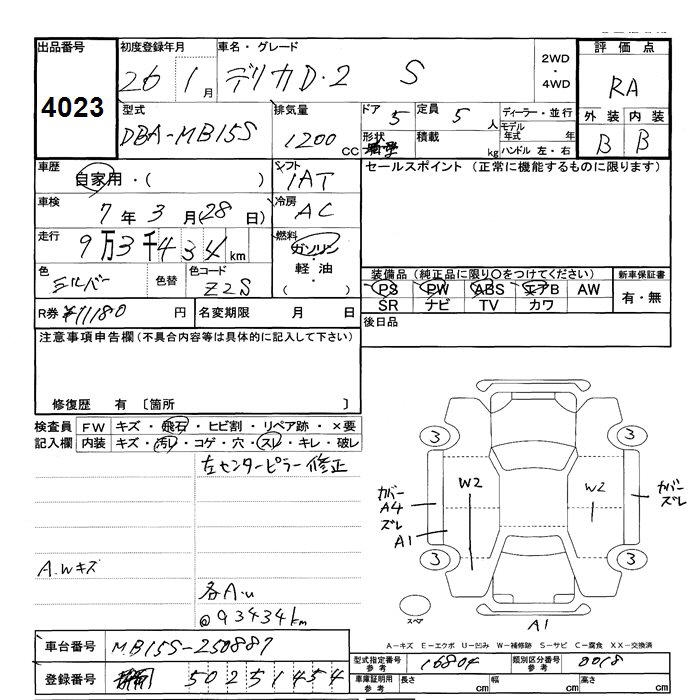 出品番号 初度登録年月 車名・グレード 評価点
4023 26 1月 デリカD・2 S 2WD・4WD RA
型式 排気量 ドア 定員 ディーラー・並行 外装 内装
DBA-MB15S 1200cc 5 5人 モデル年式 年 B B
形状 積載 kg ハンドル 左・右
車歴 シフト セールスポイント (正常に機能するものに限ります)
自家用・( ) IAT
車検 冷房
7年3月(28日) AC
走行 燃料
9万3千434km ガソリン・軽油・( )
色 色替 色コード 装備品 (純正品に限り○をつけてください) 新車保証書
シルバー Z2S PS PW ABS エアB AW 有・無
SR ナビ TV カワ
R券 ¥11180円 名変期限 月 日 後日品
注意事項申告欄 (不具合内容等は具体的に記入して下さい)
修復歴 有 〔箇所 〕
検査員記入欄 FW キズ・飛石・ヒビ割・リペア跡・×要
内装 キズ・汚レ・コゲ・穴・スレ・キレ・破レ
左センターピラー修正
A.Wキズ
各A.u
@93434km
3 3
カバー A4 ズレ W2 W2 カバー ズレ
A1
3 3
スペア A1
A-キズ E-エクボ U-凹み W-補修跡 S-サビ C-腐食 XX-交換済
車台番号 MB15S-250887
型式指定番号 参考 16804 類別区分番号 参考 0018
登録番号 502 51454
車庫証明用 参考 長さ cm 幅 cm 高さ cm